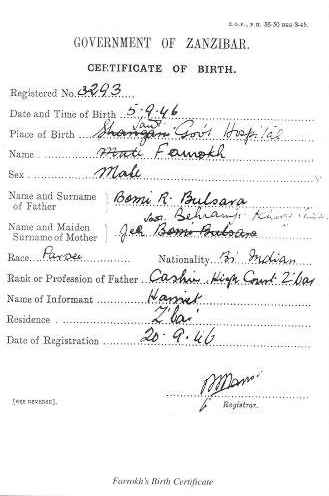 GOVERNMENT OF ZANZIBAR.
CERTIFICATE OF BIRTH.
Registered No. 3293
Date and Time of Birth 5-9-46
Place of Birth Shangani Govt Hospital
Name Male Farrokh
Sex Male
Name and Surname of Father } Bomi R. Bulsara
Name and Maiden Surname of Mother } Jer Bomi Bulsara
Race. Parsee Nationality. Br. Indian
Rank or Profession of Father Cashier High Court Z'bar
Name of Informant
Residence Z'bar
Date of Registration 20-9-46
Registrar.
[SEE REVERSE].
Farrokh's Birth Certificate